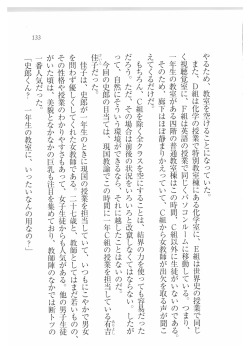 133
やまるため、教室を空けることになっていた。
また、D組は化学の授業で特別教室棟にある化学室に、E組は世界史の授業で同じ
く視聴覚室に、F組は英語の授業で同じくパソコンルームに移動している。つまり、
一年生の教室がある四階の普通教室棟はこの時間、C組以外に生徒がいないのだ。
そのため、廊下はほぼ静まりかえっていて、C組から女教師が出欠を取る声が聞こ
えてくるだけだ。
もちろん、C組を除く全クラスを空にすることは、結界の力を使っても容易だった
だろう。ただ、そうした場合は前後の状況をいろいろと改編しなくてはならない。し
たがって、自然にそういう環境ができるなら、それに越したことはないのだ。
今回の史郎の目当ては、現国教諭でこの時間に一年C組の授業を担当している有吉
佳子だった。
佳子は、史郎が一年生のときに現国の授業を担当していて、いつもにこやかで男女
を問わず優しくしてくれた女教師である。二十七歳と、教師としてはまだ若いものの、
その性格や授業のわかりやすさもあって、女子生徒からも人気がある。他の男子生徒
だった頃は、美貌となかなかの巨乳も注目を集めており、教師陣のなかでは断トツの
一番人気だった。
「史郎くん？　一年生の教室に、いったいなんの用なの？」